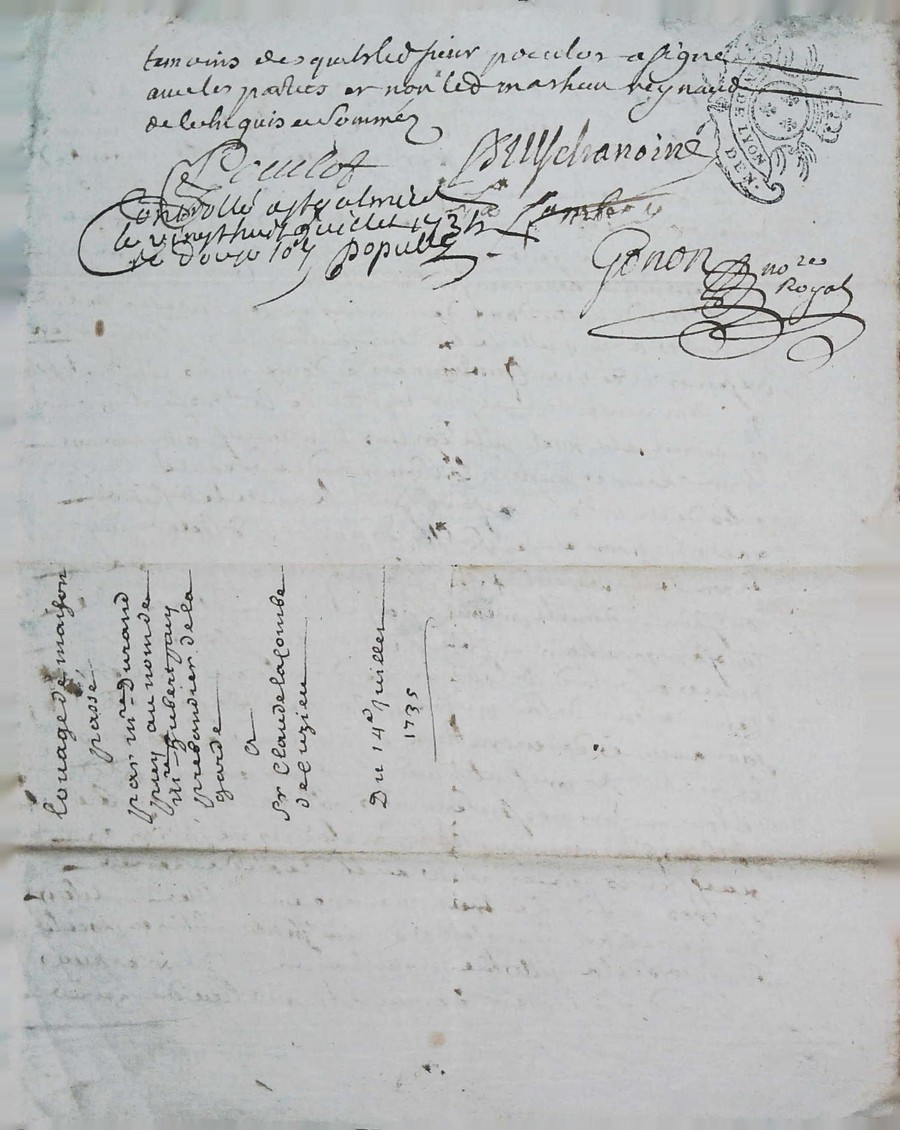 temoins desquels led sieur poculot a signé
avec les parties et non led mathieu reynaud
de ce enquis et sommé
Poculot
Puy chanoine
Controllé a St galmier
le vingt huit Juillet 1735
R douze sols Populle
Lacombe
Gonon no.re
Royal
GEN LYON DE
louage de maison
passé
par m.re Durand
puy au nom de
m.re hubert puy
prebandier de la
garde
a
Sr Claude lacombe
de Cuzieu
Du 14e Juillet
1735